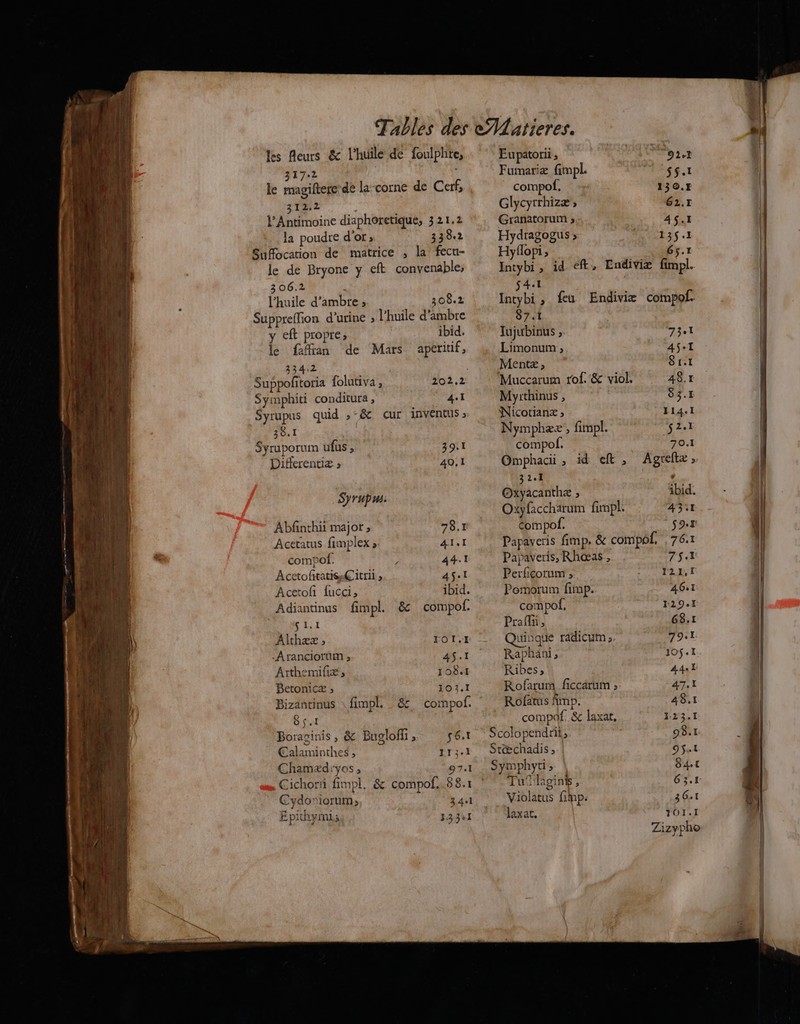 Tables des Matieres.
les fleurs & l'huile de soulphre,
317.2
le magistere de la corne de Cerf,
312.2
l'Antimoine diaphoretique, 321.2
la poudre d'or, 338.2
Suffocation de matrice, la fecu-
le de Bryone y est convenable,
306.2
l'huile d'ambre, 308.2
Suppression d'urine, l'huile d'ambre
y est propre, ibid.
le saffran de Mars aperitif,
334.2
Suppositoria solutiva, 202.2
Symphiti conditura, 4.1
Syrupus quid, & cur inventus,
38.1
Syruporum usus, 39.1
Differentiæ, 40.1
Syrupus.
Absinthii major, 78.1
Acetatus simplex, 41.1
compos. 44.1
Acetositatis Citrii, 45.1
Acetosi succi, ibid.
Adiantinus simpl. & compos.
51.1
Althææ, 101.1
Aranciorum, 45.1
Arthemisiæ, 108.1
Betonicæ, 103.1
Bizantinus simpl. & compos.
85.1
Boraginis, & Buglossi, 56.1
Calaminthes, 113.1
Chamædryos, 97.1
Cichorii simpl. & compos. 88.1
Cydoniorum, 34.1
Epithymi, 133.1
Eupatorii, 92.1
Fumariæ simpl. 55.1
compos. 130.1
Glycyrrhizæ, 62.1
Granatorum, 45.1
Hydragogus, 135.1
Hyssopi, 65.1
Intybi, id est, Endiviæ simpl.
54.1
Intybi, seu Endiviæ compos.
87.1
Iujubinus, 73.1
Limonum, 45.1
Mentæ, 81.1
Muccarum ros. & viol. 48.1
Myrthinus, 83.1
Nicotianæ, 114.1
Nymphææ, simpl. 52.1
compos. 70.1
Omphacii, id est, Agrestæ,
32.1
Oxyacanthæ, ibid.
Oxysaccharum simpl. 43.1
compos. 59.1
Papaveris simp. & compos. 76.1
Papaveris, Rhœas, 75.1
Persicorum, 121.1
Pomorum simp. 46.1
compos. 129.1
Prassii, 68.1
Quinque radicum, 79.1
Raphani, 105.1
Ribes, 44.1
Rosarum siccarum, 47.1
Rosatus simp. 48.1
compos. & laxat. 123.1
Scolopendrii, 98.1
Stœchadis, 95.1
Symphyti, 84.1
Tussilaginis, 63.1
Violatus simp. 36.1
laxat. 101.1
Zizypho